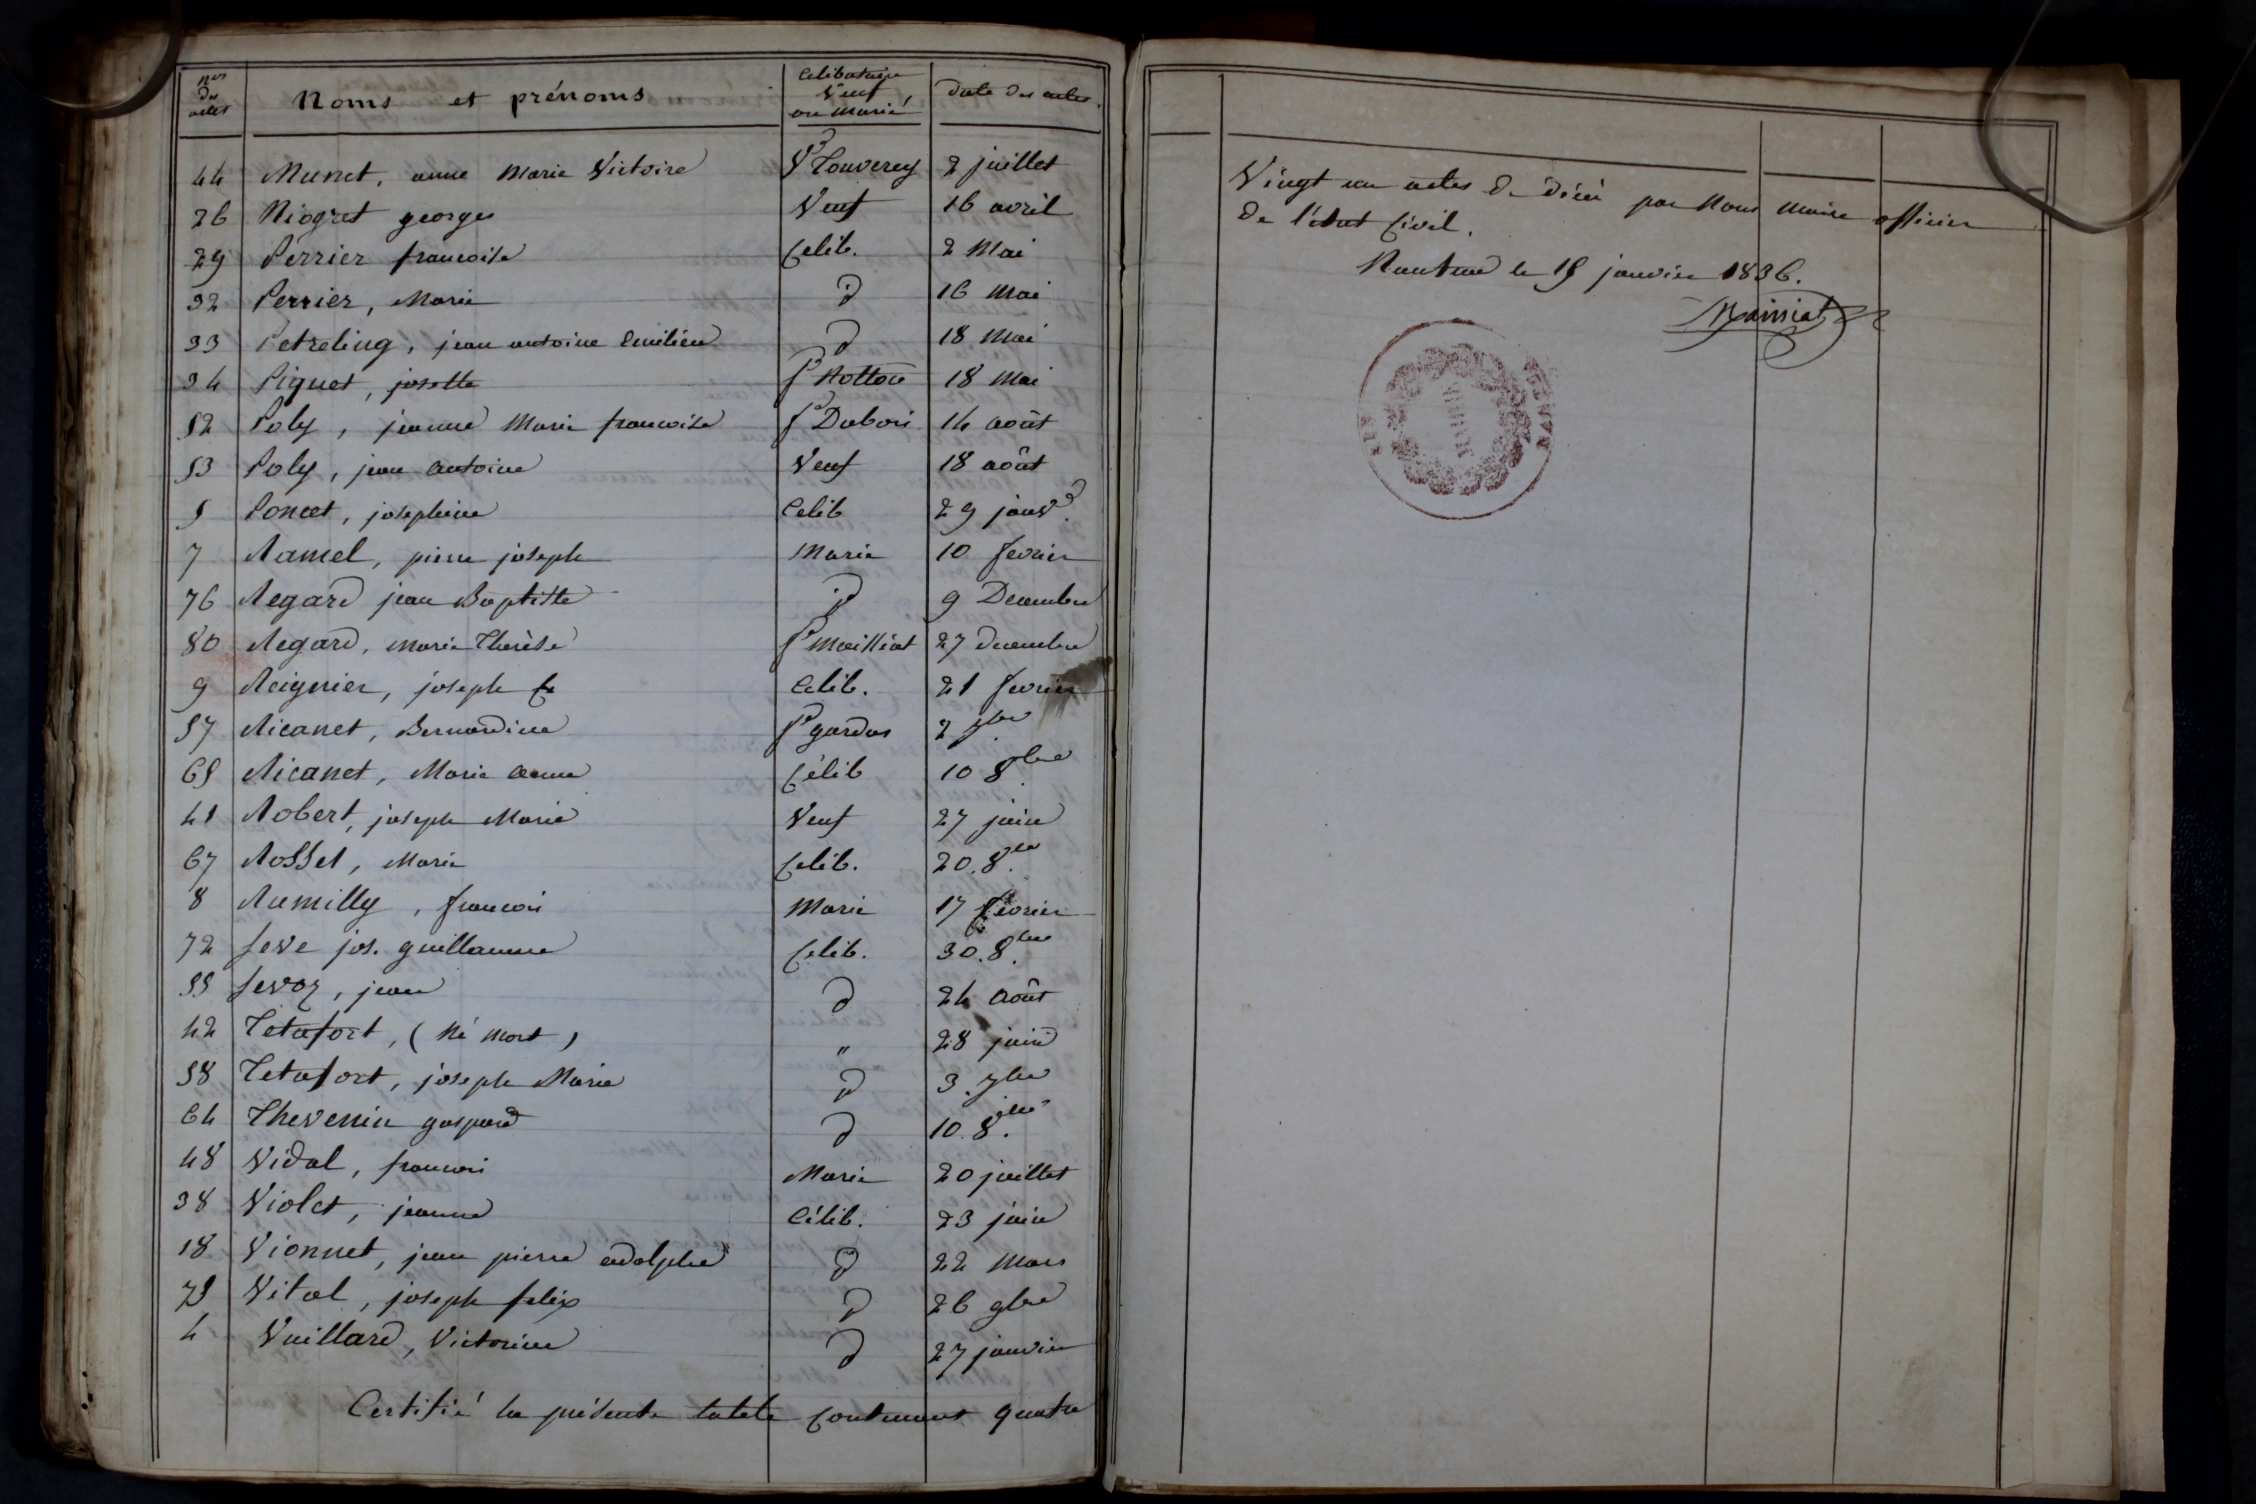 Nos des actes | Noms et prénoms | Celibataire Veuf ou Marié | Date des actes
44 Munet, anne Marie Victoire Ve Touverey 2 juillet
26 Niogret georges Veuf 16 avril
29 Perrier francoise Celib. 2 Mai
32 Perrier, Marie d 16 Mai
33 Petreling, jean antoine Emilien d 18 Mai
34 Piquet, josette fe 18 Mai
52 Poly, jeanne Marie francoise fe Dubois 14 août
53 Poly, jean antoine Veuf 18 août
5 Poncet, josephine Celib 29 janvr
7 Ramel, pierre joseph Marié 10 fevrier
76 Regard jean Baptiste d 9 Decembre
80 Regard, marie Thérèse fe Mailliat 27 decembre
9 Reignier, joseph Celib. 21 fevrier
57 Ricanet, Bernardine fe gardas 2 7bre
65 Ricanet, Marie anne Célib 10 8bre
41 Robert, joseph Marie Veuf 27 juin
67 Rosset, Marie Celib. 20. 8bre
8 Rumilly, francois Marié 17 fevrier
72 Seve jos. guillaume Celib. 30. 8bre
55 Sevoz, jean d 24 août
42 Tetafort, (Né Mort) " 28 juin
58 Tetafort, joseph Marie d 3. 7bre
64 Thevenin gaspard d 10. 8bre
48 Vidal, francois Marié 20 juillet
38 Violet, jeanne Célib. 23 juin
18 Vionnet, jean pierre adolphe d 22 Mars
75 Vital, joseph felix d 26 9bre
4 Vuillard, Victorine d 27 janvier
Certifié la présente table contenant quatre
Vingt un actes de décés par Nous Maire officier
de l'état Civil.
Nantua le 15 janvier 1836.
MAIRIE